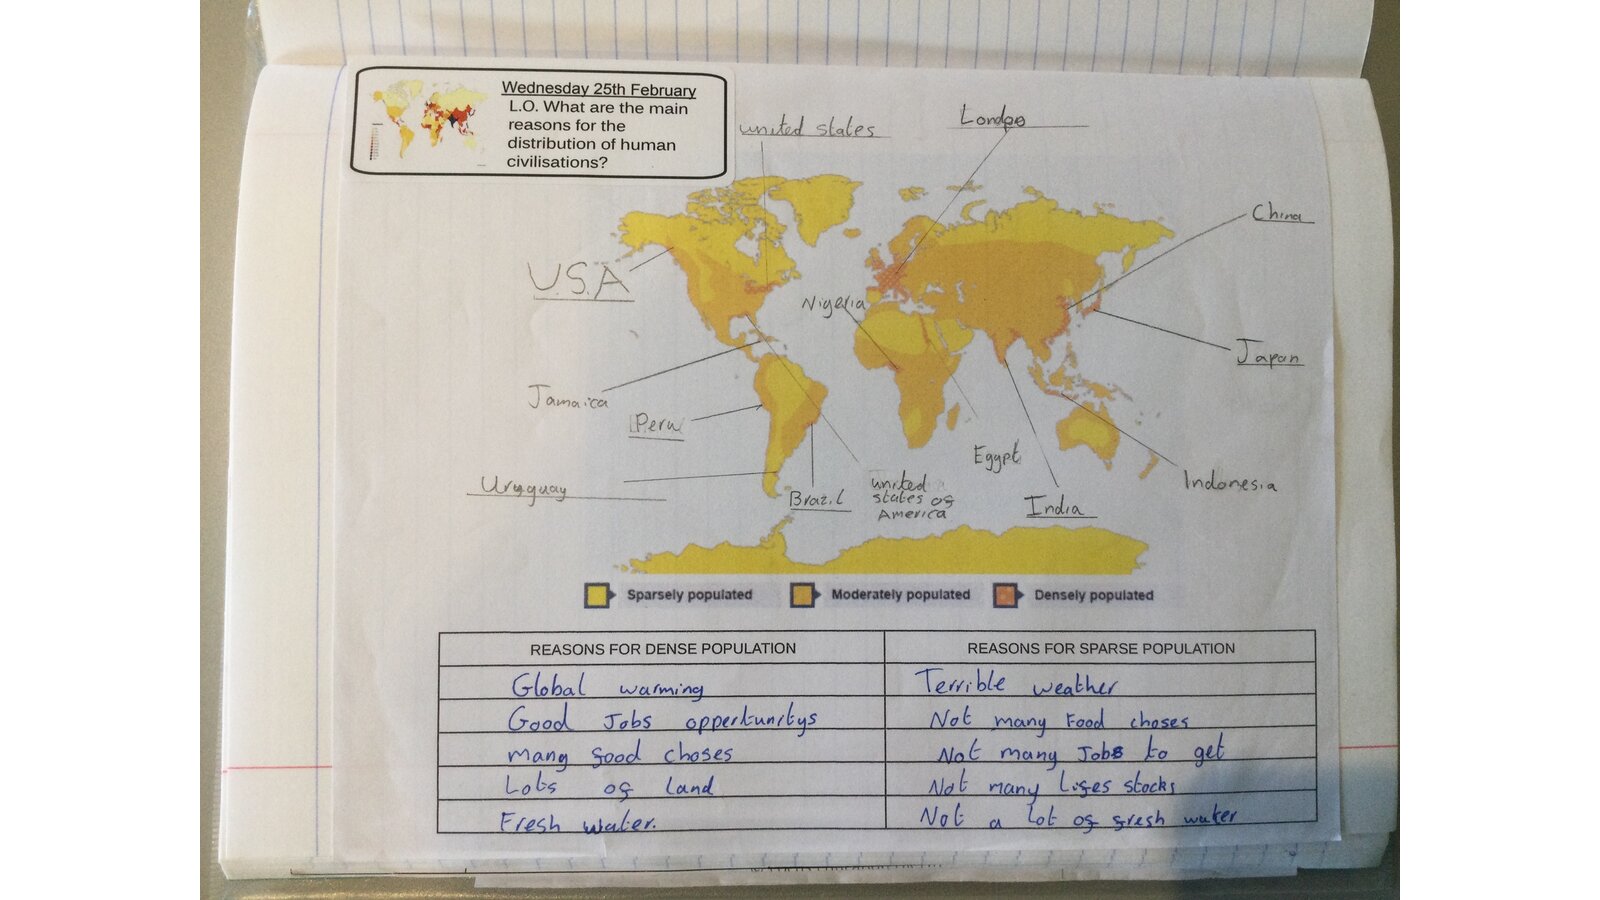 Wednesday 25th February
L.O. What are the main
reasons for the
distribution of human
civilisations?
united states
London
China
U.S.A
Nigeria
Japan
Jamaica
Peru
Egypt
Uruguay
Brazil
united
states of
America
India
Indonesia
Sparsely populated
Moderately populated
Densely populated
REASONS FOR DENSE POPULATION
REASONS FOR SPARSE POPULATION
Global warming
Terrible weather
Good Jobs oppertunitys
Not many Food choses
many food choses
Not many Jobs to get
Lots of land
Not many lifes stocks
Fresh water.
Not a lot of fresh water